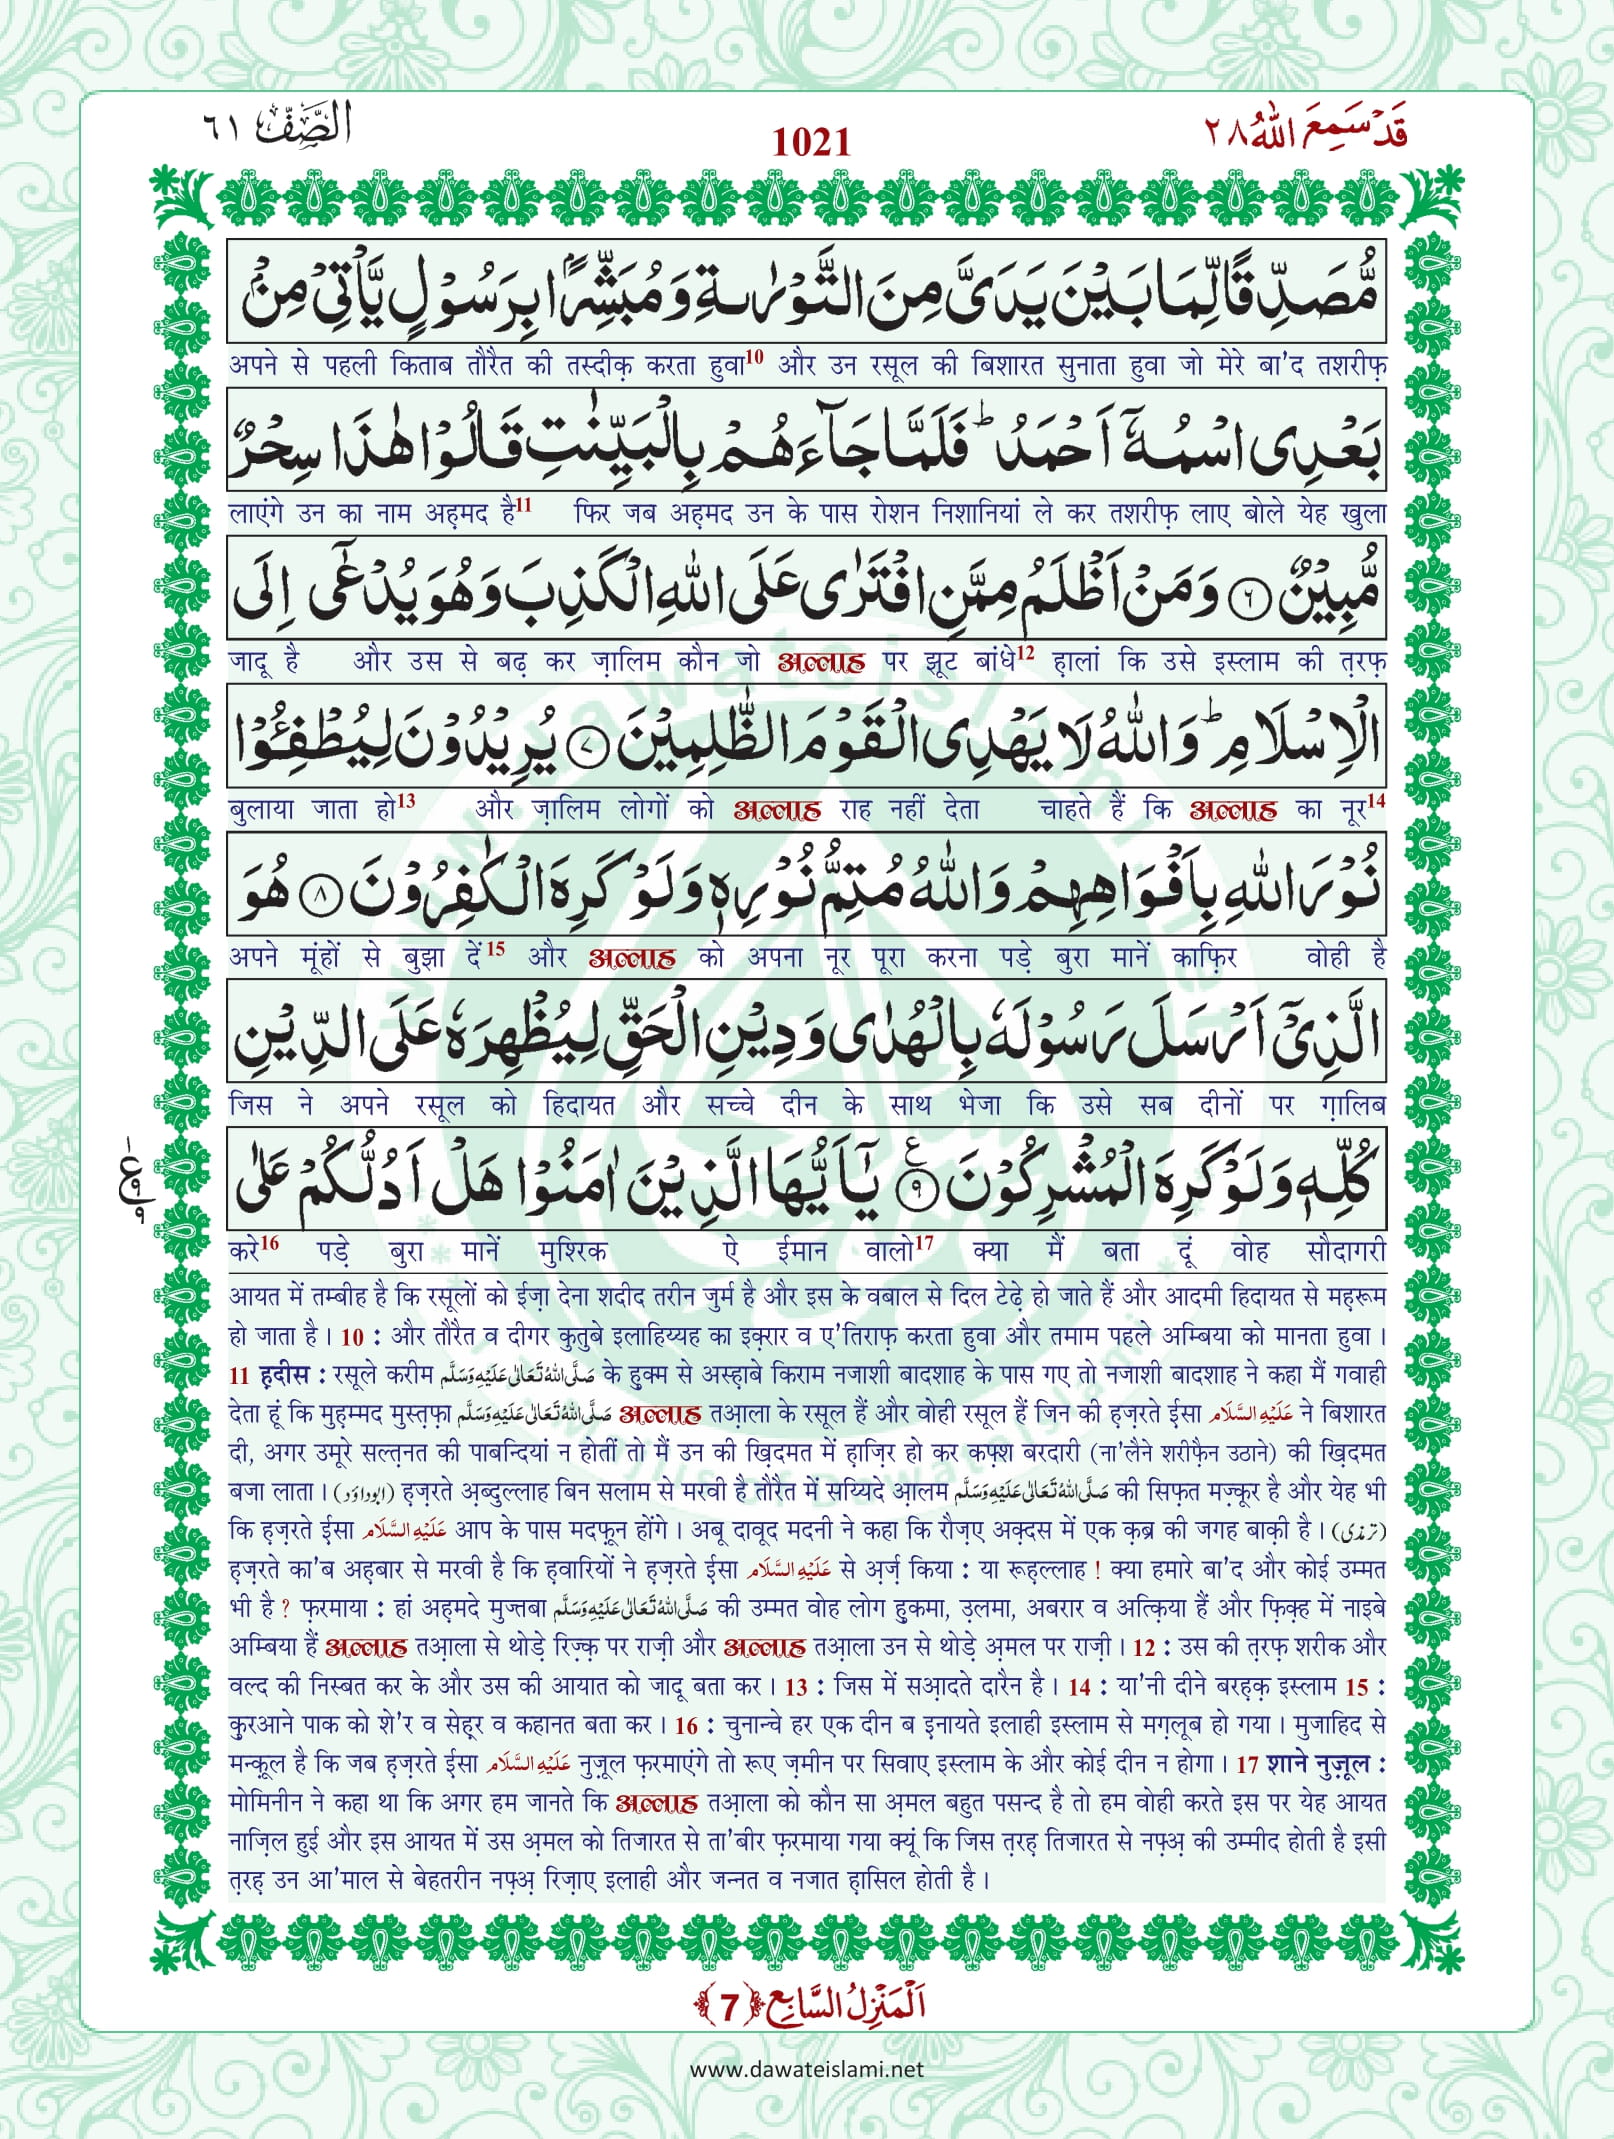 الصَّفّ ٦١
1021
قَدْ سَمِعَ اللّٰهُ ٢٨
مُّصَدِّقًا لِّمَا بَیْنَ یَدَیَّ مِنَ التَّوْرٰىةِ وَ مُبَشِّرًۢا بِرَسُوْلٍ یَّاْتِیْ مِنْۢ
अपने से पहली किताब तौरैत की तस्दीक़ करता हुवा10 और उन रसूल की बिशारत सुनाता हुवा जो मेरे बा'द तशरीफ़
بَعْدِی اسْمُهٗۤ اَحْمَدُؕ فَلَمَّا جَآءَهُمْ بِالْبَیِّنٰتِ قَالُوْا هٰذَا سِحْرٌ
लाएंगे उन का नाम अह़मद है11 फिर जब अह़मद उन के पास रोशन निशानियां ले कर तशरीफ़ लाए बोले येह खुला
مُّبِیْنٌ ﴿٦﴾ وَ مَنْ اَظْلَمُ مِمَّنِ افْتَرٰى عَلَى اللّٰهِ الْكَذِبَ وَ هُوَ یُدْعٰۤى اِلَى
जादू है और उस से बढ़ कर ज़ालिम कौन जो अल्लाह पर झूट बांधे12 ह़ालां कि उसे इस्लाम की त़रफ़
الْاِسْلَامِؕ وَ اللّٰهُ لَا یَهْدِی الْقَوْمَ الظّٰلِمِیْنَ ﴿٧﴾ یُرِیْدُوْنَ لِیُطْفِـٴُـوْا
बुलाया जाता हो13 और ज़ालिम लोगों को अल्लाह राह नहीं देता चाहते हैं कि अल्लाह का नूर14
نُوْرَ اللّٰهِ بِاَفْوَاهِهِمْ وَ اللّٰهُ مُتِمُّ نُوْرِهٖ وَ لَوْ كَرِهَ الْكٰفِرُوْنَ ﴿٨﴾ هُوَ
अपने मूंहों से बुझा दें15 और अल्लाह को अपना नूर पूरा करना पड़े बुरा मानें काफ़िर वोही है
الَّذِیْۤ اَرْسَلَ رَسُوْلَهٗ بِالْهُدٰى وَ دِیْنِ الْحَقِّ لِیُظْهِرَهٗ عَلَى الدِّیْنِ
जिस ने अपने रसूल को हिदायत और सच्चे दीन के साथ भेजा कि उसे सब दीनों पर ग़ालिब
كُلِّهٖ وَ لَوْ كَرِهَ الْمُشْرِكُوْنَ ﴿٩﴾ۧ یٰۤاَیُّهَا الَّذِیْنَ اٰمَنُوْا هَلْ اَدُلُّكُمْ عَلٰى
करे16 पड़े बुरा मानें मुश्रिक ऐ ईमान वालो17 क्या मैं बता दूं वोह सौदागरी
आयत में तम्बीह है कि रसूलों को ईज़ा देना शदीद तरीन जुर्म है और इस के वबाल से दिल टेढ़े हो जाते हैं और आदमी हिदायत से महरूम
हो जाता है । 10 : और तौरैत व दीगर कुतुबे इलाहिय्यह का इक़्रार व ए'तिराफ़ करता हुवा और तमाम पहले अम्बिया को मानता हुवा ।
11 ह़दीस : रसूले करीम صَلَّى اللّٰهُ تَعَالٰى عَلَيْهِ وَسَلَّم के हुक्म से अस्ह़ाबे किराम नजाशी बादशाह के पास गए तो नजाशी बादशाह ने कहा मैं गवाही
देता हूं कि मुह़म्मद मुस्त़फ़ा صَلَّى اللّٰهُ تَعَالٰى عَلَيْهِ وَسَلَّم अल्लाह तआ़ला के रसूल हैं और वोही रसूल हैं जिन की ह़ज़रते ईसा عَلَيْهِ السَّلَام ने बिशारत
दी, अगर उमूरे सल्त़नत की पाबन्दियां न होतीं तो मैं उन की ख़िदमत में ह़ाज़िर हो कर कफ़्श बरदारी (ना'लैने शरीफ़ैन उठाने) की ख़िदमत
बजा लाता । (ابوداؤد) ह़ज़रते अ़ब्दुल्लाह बिन सलाम से मरवी है तौरैत में सय्यिदे आ़लम صَلَّى اللّٰهُ تَعَالٰى عَلَيْهِ وَسَلَّم की सिफ़त मज़्कूर है और येह भी
कि ह़ज़रते ईसा عَلَيْهِ السَّلَام आप के पास मदफ़ून होंगे । अबू दावूद मदनी ने कहा कि रौज़ए अक़्दस में एक क़ब्र की जगह बाक़ी है । (ترمذی)
ह़ज़रते का'ब अह़बार से मरवी है कि ह़वारियों ने ह़ज़रते ईसा عَلَيْهِ السَّلَام से अ़र्ज़ किया : या रूह़ल्लाह ! क्या हमारे बा'द और कोई उम्मत
भी है ? फ़रमाया : हां अह़मदे मुज्तबा صَلَّى اللّٰهُ تَعَالٰى عَلَيْهِ وَسَلَّم की उम्मत वोह लोग ह़ुकमा, उ़लमा, अबरार व अत्क़िया हैं और फ़िक़्ह में नाइबे
अम्बिया हैं अल्लाह तआ़ला से थोड़े रिज़्क़ पर राज़ी और अल्लाह तआ़ला उन से थोड़े अ़मल पर राज़ी । 12 : उस की त़रफ़ शरीक और
वल्द की निस्बत कर के और उस की आयात को जादू बता कर । 13 : जिस में सआ़दते दारैन है । 14 : या'नी दीने बरह़क़ इस्लाम 15 :
कुरआने पाक को शे'र व सेह़र व कहानत बता कर । 16 : चुनान्चे हर एक दीन ब इ़नायते इलाही इस्लाम से मग़्लूब हो गया । मुजाहिद से
मन्क़ूल है कि जब ह़ज़रते ईसा عَلَيْهِ السَّلَام नुज़ूल फ़रमाएंगे तो रूए ज़मीन पर सिवाए इस्लाम के और कोई दीन न होगा । 17 शाने नुज़ूल :
मोमिनीन ने कहा था कि अगर हम जानते कि अल्लाह तआ़ला को कौन सा अ़मल बहुत पसन्द है तो हम वोही करते इस पर येह आयत
नाज़िल हुई और इस आयत में उस अ़मल को तिजारत से ता'बीर फ़रमाया गया क्यूं कि जिस त़रह़ तिजारत से नफ़्अ़ की उम्मीद होती है इसी
त़रह़ उन आ'माल से बेहतरीन नफ़्अ़ रिज़ाए इलाही और जन्नत व नजात ह़ासिल होती है ।
اَلْمَنْزِلُ السَّابِع ﴿7﴾
www.dawateislami.net